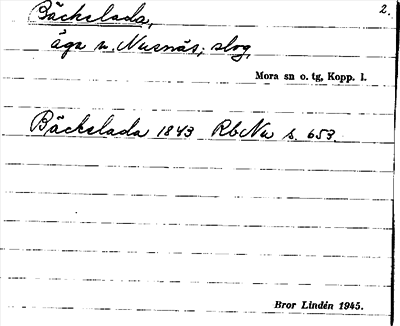 Bäckslada, 2.
äga n. Nusnäs; slog,
Mora sn o. tg, Kopp. l.
Bäckslada 1843 RbNu s. 653.
Bror Lindén 1945.